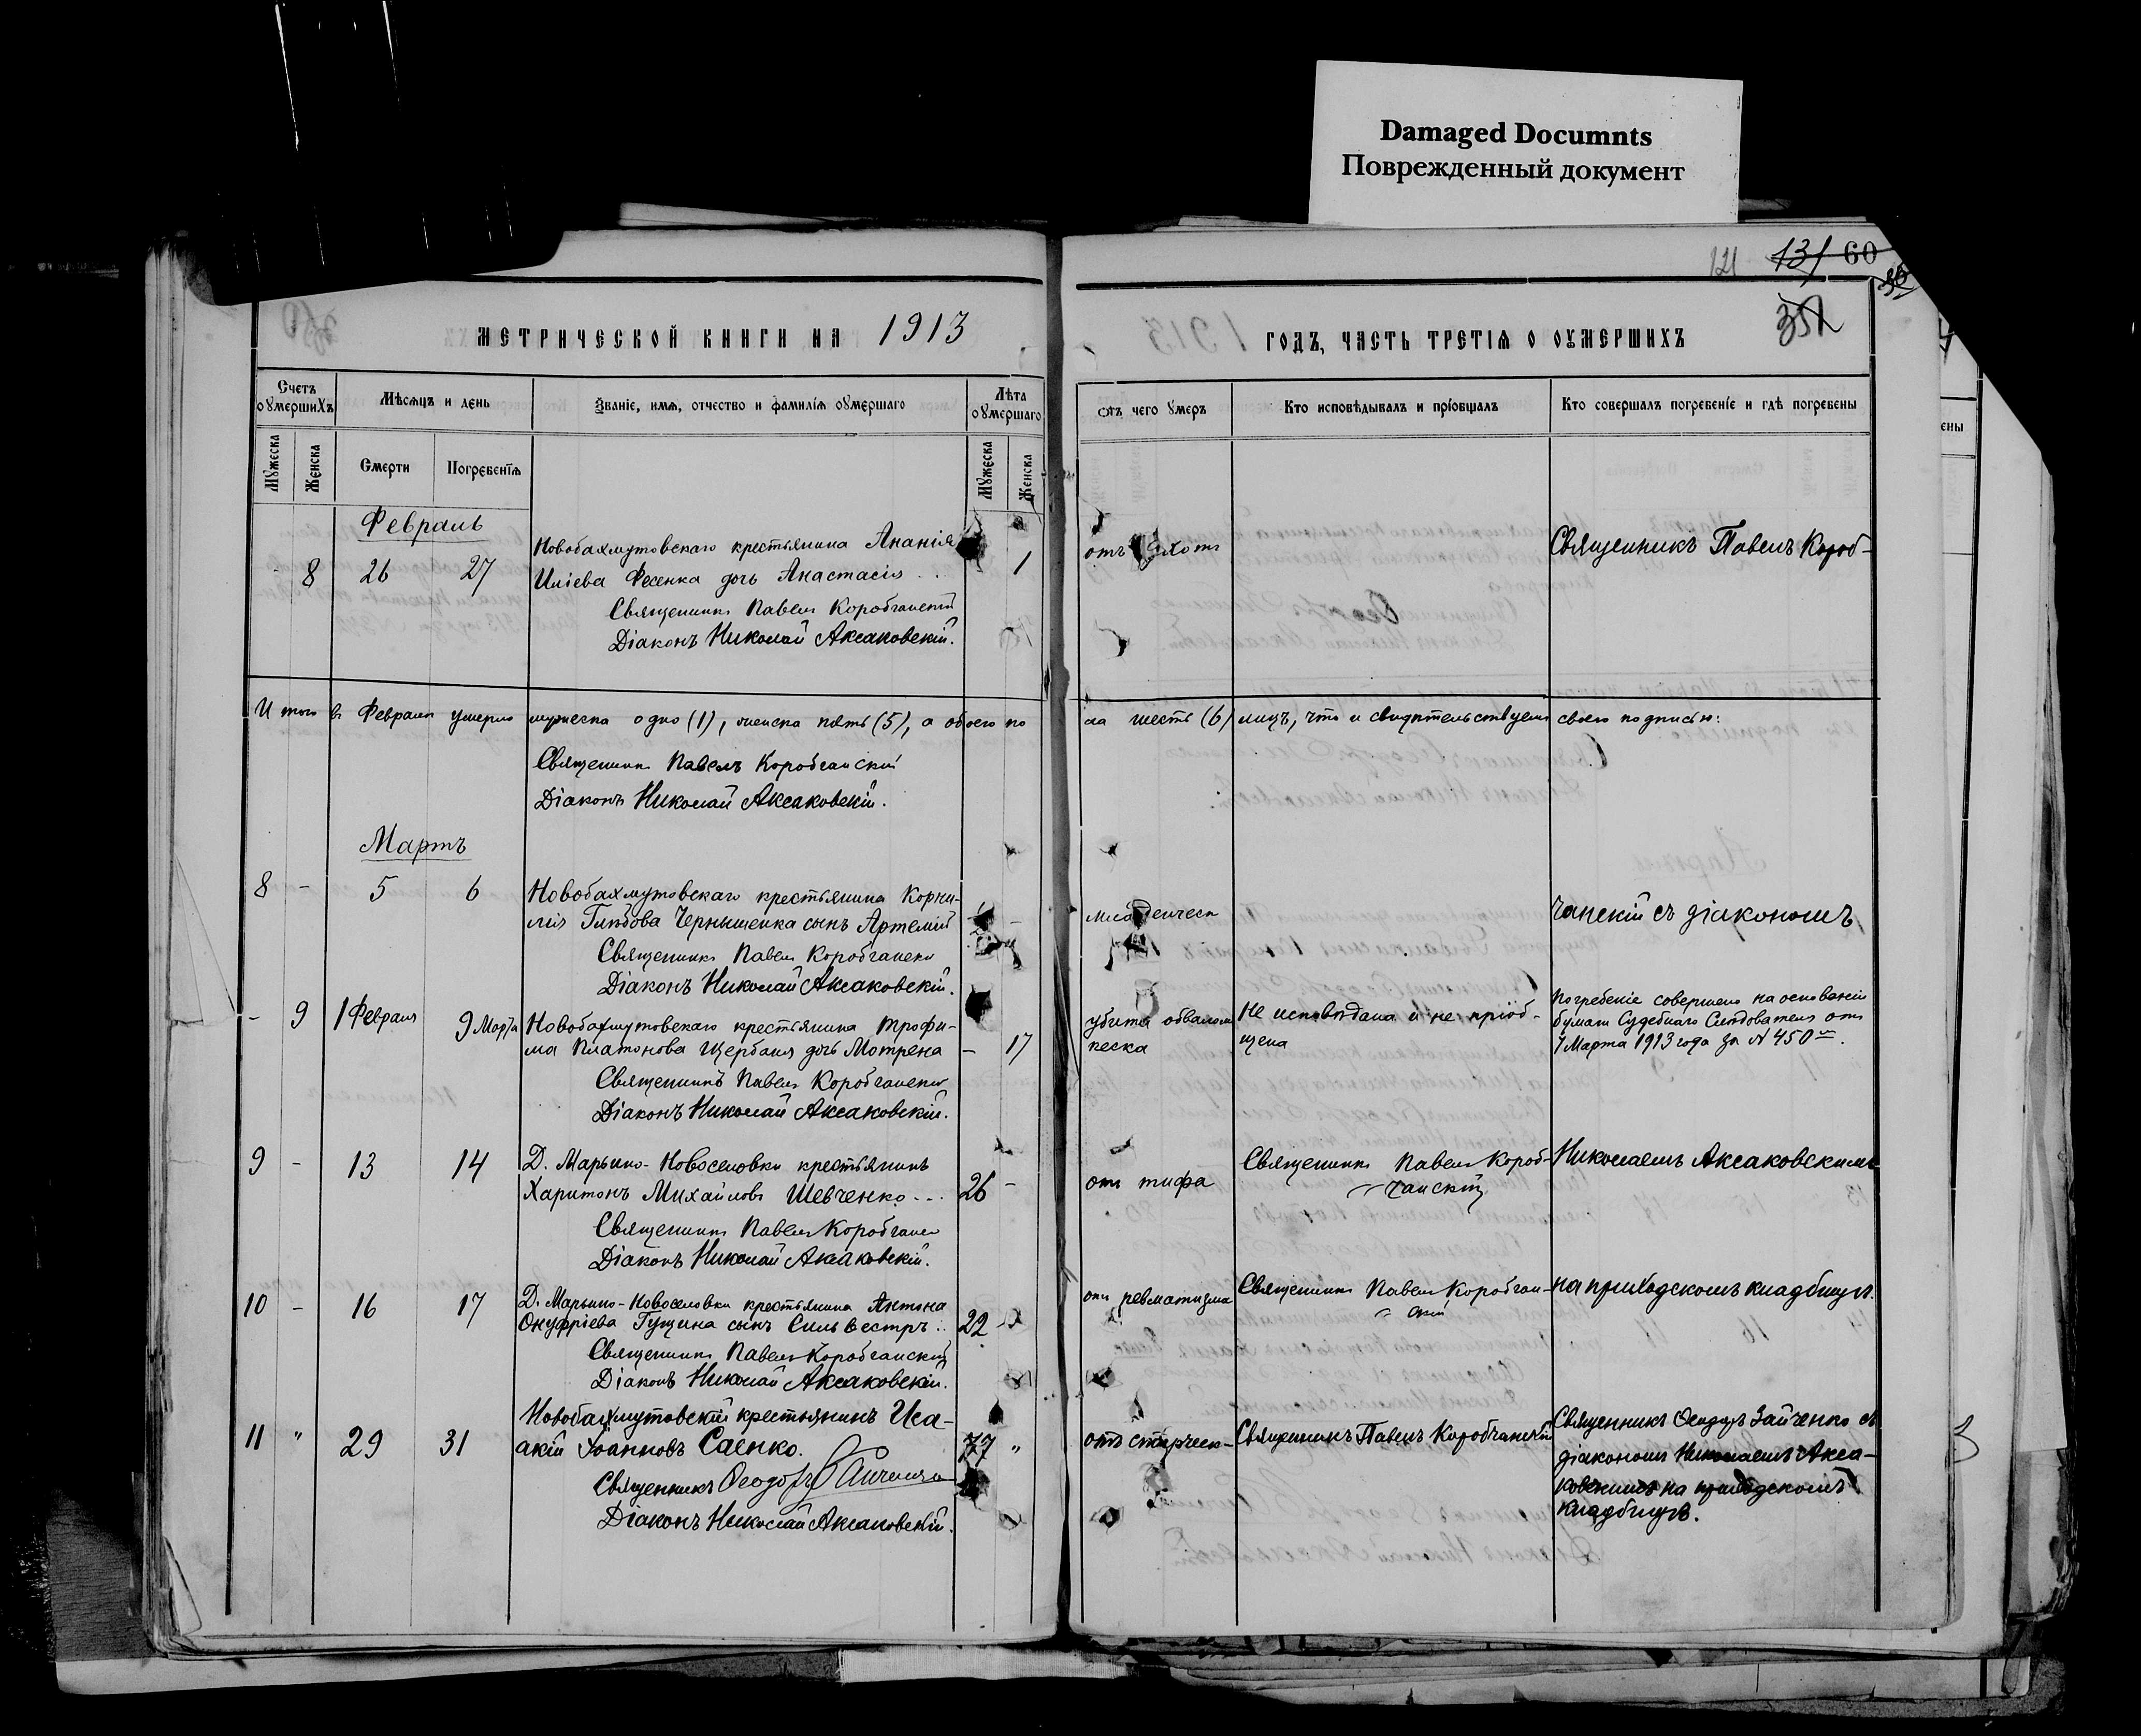 Damaged Documnts
Поврежденный документ
121 131 60
36
351
МЕТРИЧЕСКОЙ КНИГИ НА 1913
ГОДЪ, ЧАСТЬ ТРЕТІЯ О ОУМЕРШИХЪ
Счетъ оумершихъ
Мѣсяцъ и день
Званіе, имя, отчество и фамилія оумершаго
Лѣта оумершаго
Отъ чего умеръ
Кто исповѣдывалъ и пріобщалъ
Кто совершалъ погребеніе и гдѣ погребены
ены
Мужеска
Женска
Смерти
Погребенія
Мужеска
Женска
Февраль
8 26 27
Новобахмутовскаго крестьянина Ананія
Иліева Фесенка дочь Анастасія 1
Священникъ Павелъ Коробчанскій
Діаконъ Николай Аксаковскій.
отъ
Священникъ Павелъ Короб-
Итого въ Февралѣ умерло мужеска одно (1), женска пять (5), а обоего по
ла шесть (6) лицъ, что и свидѣтельствуемъ своею подписью:
Священникъ Павелъ Коробчанскій
Діаконъ Николай Аксаковскій.
Мартъ
8 - 5 6
Новобахмутовскаго крестьянина Корни-
лія Глѣбова Чернышенка сынъ Артемій
Священникъ Павелъ Коробчанскій
Діаконъ Николай Аксаковскій.
младенческ
чанскій съ діакономъ
- 9 1 Февраля 9 Марта
Новобахмутовскаго крестьянина Трофи-
ма Платонова Щербаня дочь Мотрона - 17
Священникъ Павелъ Коробчанскій
Діаконъ Николай Аксаковскій.
убита обваломъ
песка
Не исповѣдана и не пріоб-
щена
Погребеніе совершено на основаніи
бумаги Судебнаго Слѣдователя отъ
7 Марта 1913 года за № 450.
9 - 13 14
Д. Марьино-Новоселовки крестьянинъ
Харитонъ Михайловъ Шевченко 26 -
Священникъ Павелъ Коробчанс
Діаконъ Николай Аксаковскій.
отъ тифа
Священникъ Павелъ Короб-
чанскій
Николаемъ Аксаковскимъ
10 - 16 17
Д. Марьино-Новоселовки крестьянина Антона
Онуфріева Гущина сынъ Сильвестръ 22 -
Священникъ Павелъ Коробчанскій
Діаконъ Николай Аксаковскій.
отъ ревматизма
Священникъ Павелъ Коробчан-
скій
на приходскомъ кладбищѣ.
11 " 29 31
Новобахмутовскій крестьянинъ Иса-
акій Іоанновъ Саенко. 77 "
Священникъ Ѳеодоръ Зайченко
Діаконъ Николай Аксаковскій.
отъ старческ-
Священникъ Павелъ Коробчанскій
Священникъ Ѳеодоръ Зайченко съ
діакономъ Николаемъ Акса-
ковскимъ на приходскомъ
кладбищѣ.